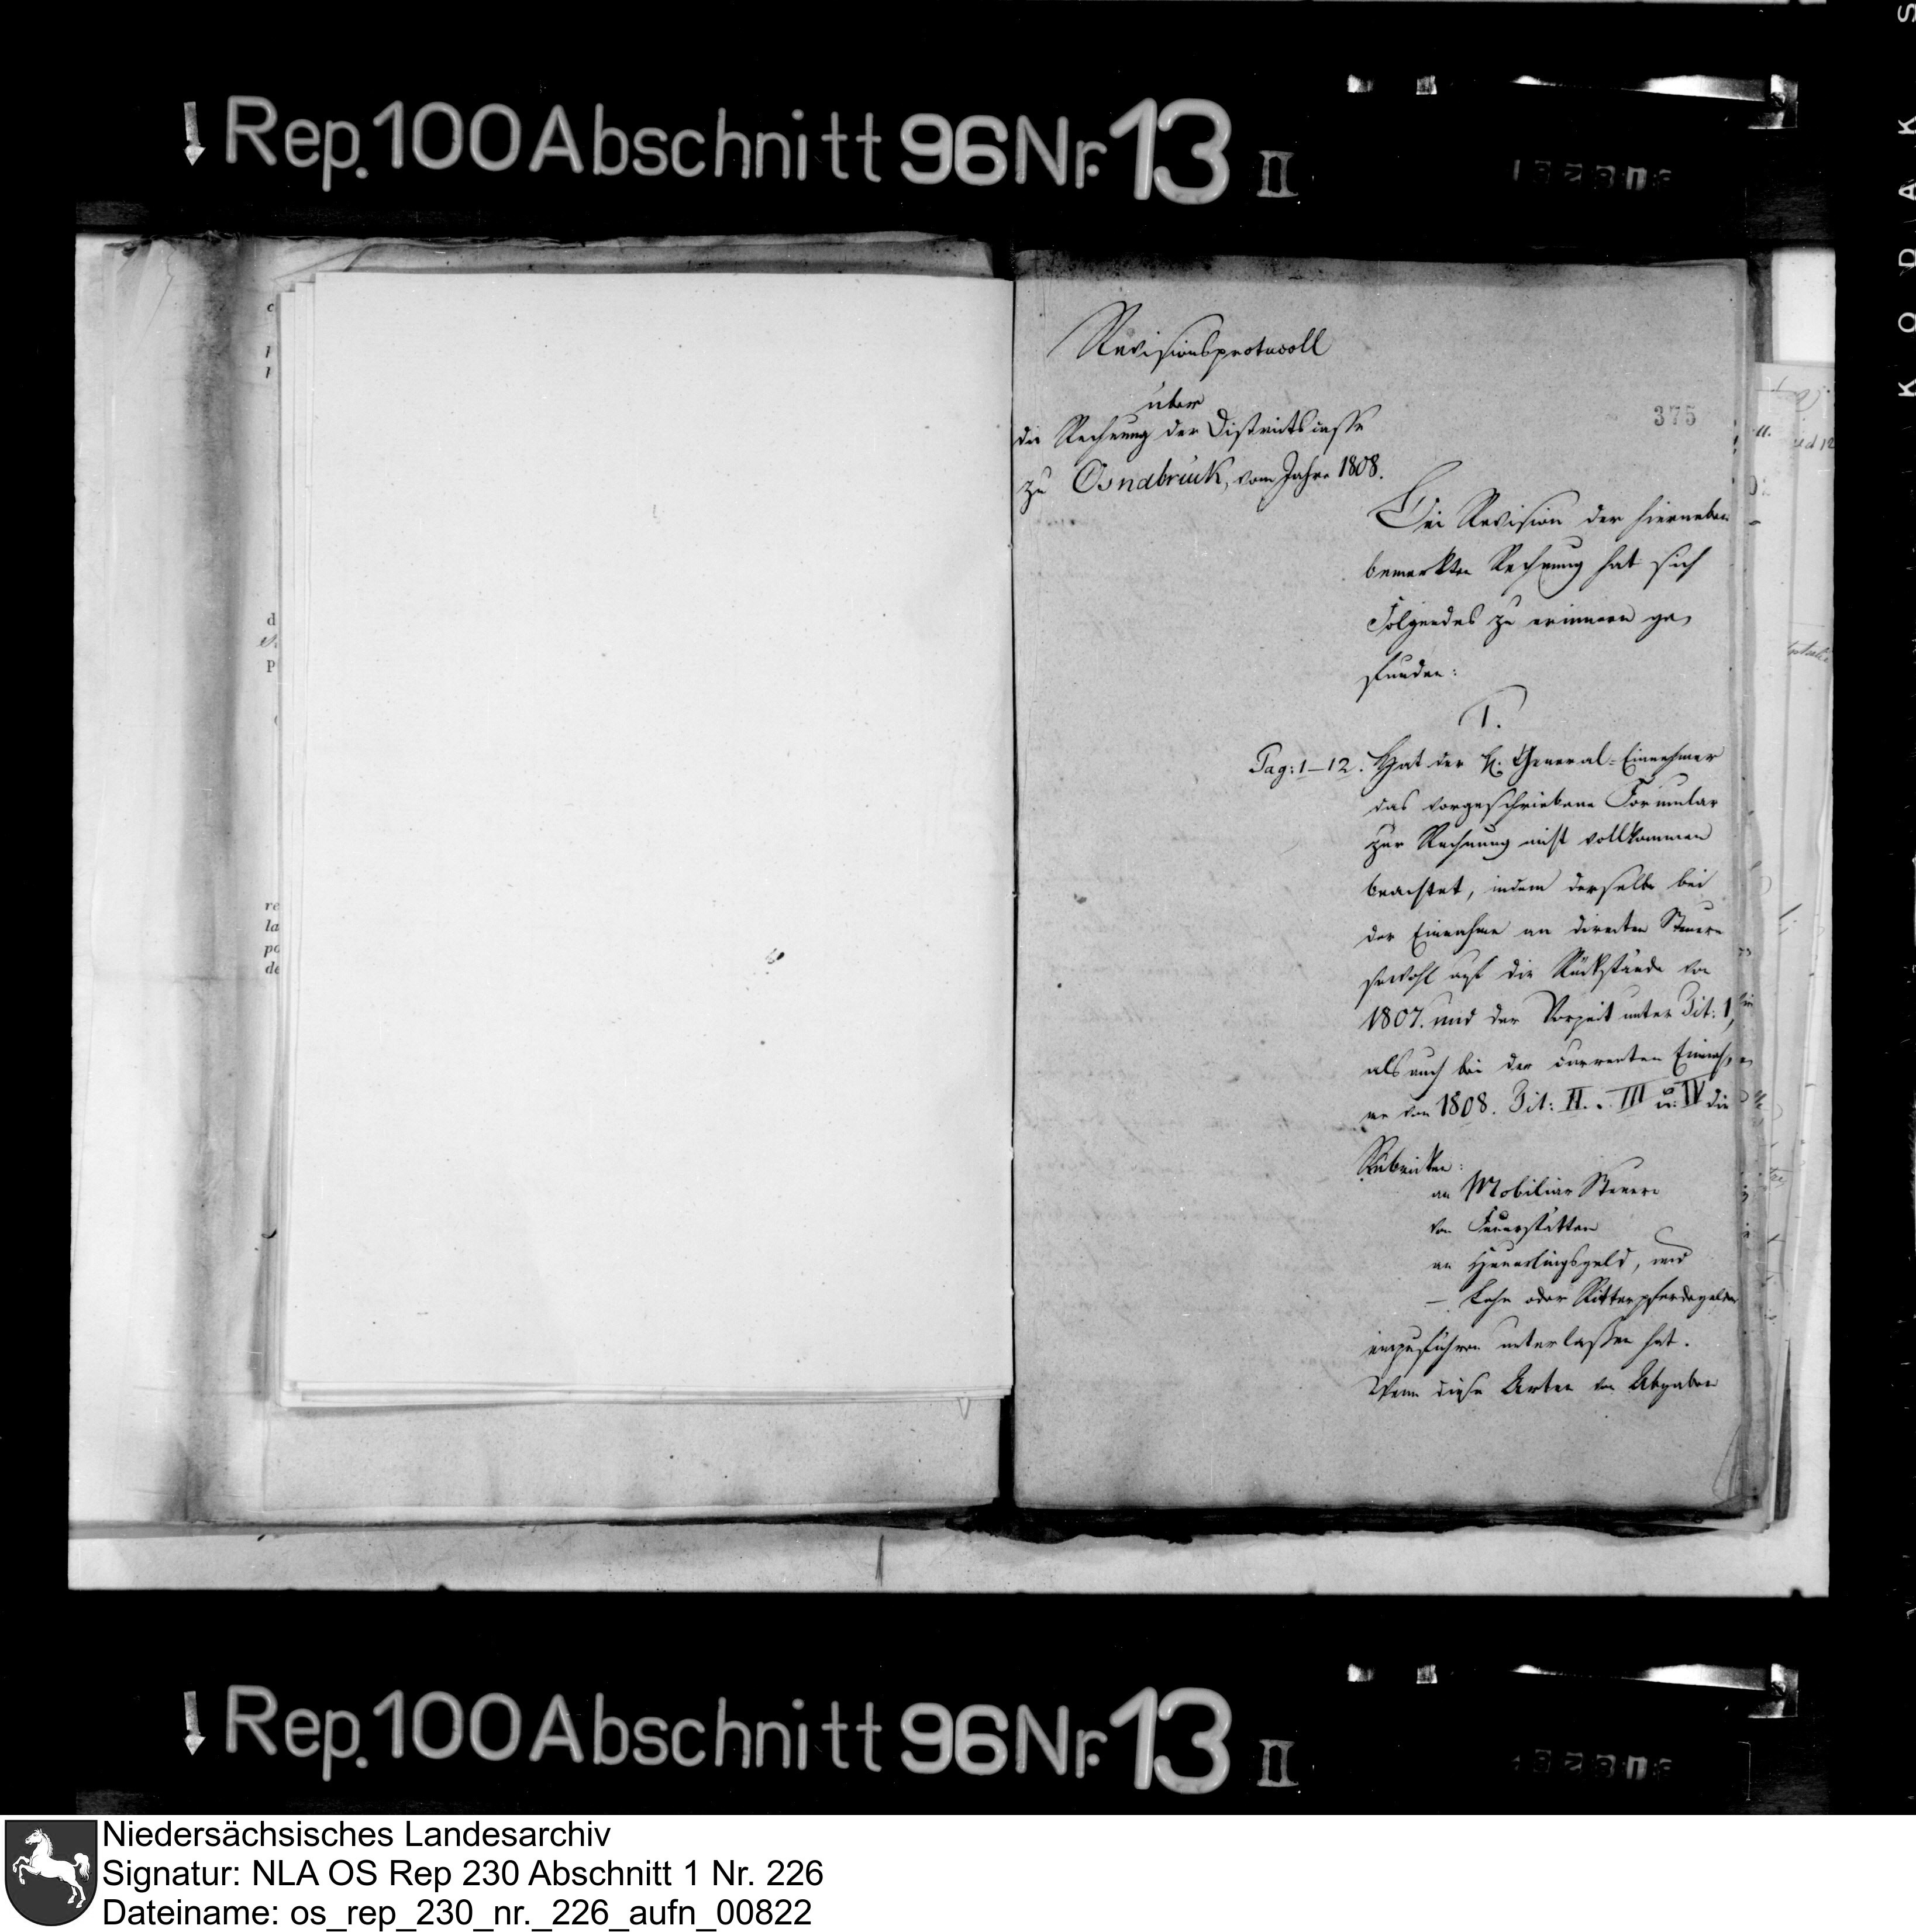 Rep. 100 Abschnitt 96 Nr. 13 II
KODAK S
Revisionsprotocoll
über
die Rechnung der Districtscasse
zu Osnabrück, vom Jahre 1808.
375
Bei Revision der hierneben
bemerkten Rechnung hat sich
Folgendes zu erinnern ge¬
funden:
1.
Pag: 1–12. Hat der H. General-Einnehmer
das vorgeschriebene Formular
zur Rechnung nicht vollkommen
beachtet, indem derselbe bei
der Einnahme an directen Steuern
sowohl auf die Rückstände von
1807. und der Vorzeit unter Tit: 1,
als auch bei der currenten Einnah¬
me von 1808. Tit: II. III u. IV die
Rubriken:
an Mobiliar Steuern
von Feuerstätten
an Heuerlingsgeld, und
— Lehn oder Ritterpferdegelder
einzuführen unterlaßen hat.
Wenn diese Arten von Abgaben
re
la
po
de
Rep. 100 Abschnitt 96 Nr. 13 II
Niedersächsisches Landesarchiv
Signatur: NLA OS Rep 230 Abschnitt 1 Nr. 226
Dateiname: os_rep_230_nr._226_aufn_00822